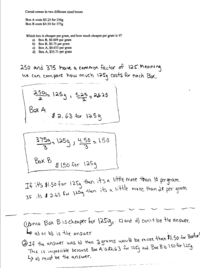 Cereal comes in two different sized boxes:
Box A costs $5.25 for 250g
Box B costs $4.50 for 375g
Which box is cheaper per gram, and how much cheaper per gram is it?
a) Box B, $0.009 per gram
b) Box B, $0.75 per gram
c) Box A, $0.075 per gram
d) Box A, $35.71 per gram
250 and 375 have a common factor of 125 meaning
we can compare how much 125g costs for each Box.
250g / 2 = 125g , 5.25 / 2 = 2.625
Box A
$ 2.63 for 125g
375g / 3 = 125g , 4.50 / 3 = 1.50
Box B
$1.50 for 125g
If it's $1.50 for 125g then it's a little more than 1¢ per gram
If it's $2.63 for 125g then it's a little more than 2¢ per gram
① Since Box B is cheaper for 125g, c) and d) can't be the answer.
↳ a) or b) is the answer
② If the answer was b) then 2 grams would be more than $1.50 for
This is impossible because Box A is $2.63 for 125g and Box B is 1.50 for 125g
↳ a) must be the answer.